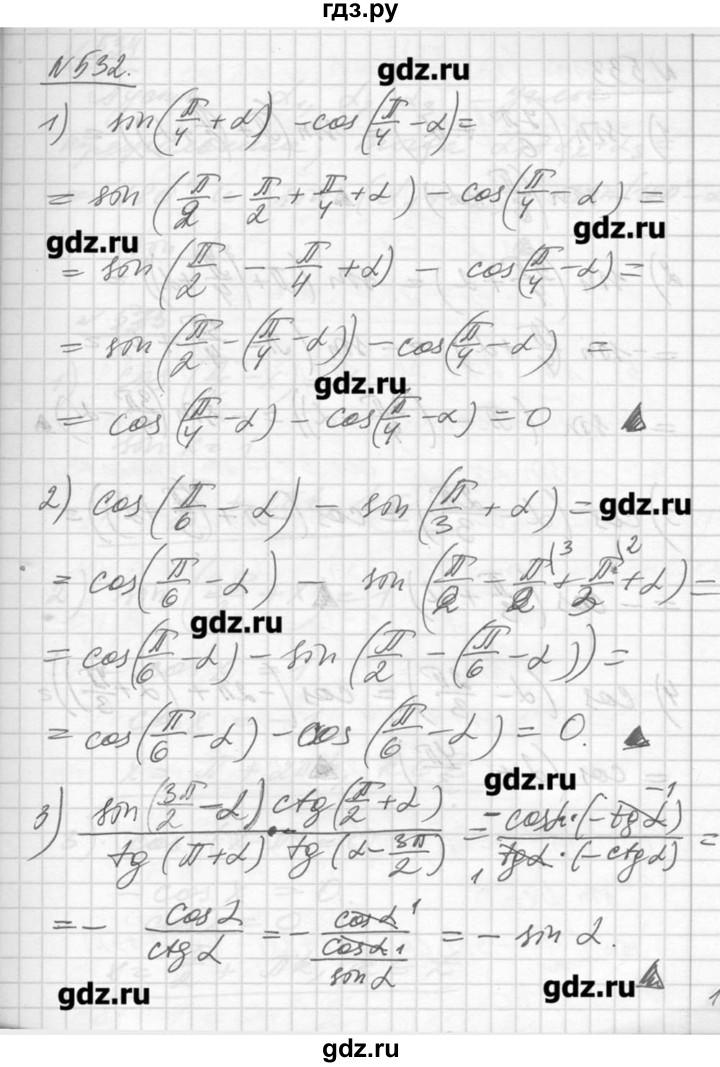 гдз.ру
№532.
gdz.ru
1) sin(π/4 + α) - cos(π/4 - α) =
= sin(π/2 - π/2 + π/4 + α) - cos(π/4 - α) =
gdz.ru
gdz.ru
= sin(π/2 - π/4 + α) - cos(π/4 - α) =
= sin(π/2 - (π/4 - α)) - cos(π/4 - α) =
gdz.ru
= cos(π/4 - α) - cos(π/4 - α) = 0
2) cos(π/6 - α) - sin(π/3 + α) =
gdz.ru
= cos(π/6 - α) - sin(π/2 - π/2\3 + π/3\2 + α) =
gdz.ru
= cos(π/6 - α) - sin(π/2 - (π/6 - α)) =
= cos(π/6 - α) - cos(π/6 - α) = 0.
gdz.ru
3) sin(3π/2 - α) ctg(π/2 + α) / tg(π + α) · tg(α - 3π/2) = -cosα·(-tgα) -1 / 1 tgα·(-ctgα) =
= - cosα/ctgα = - cosα 1 / (cosα 1 / sinα) = - sinα.
gdz.ru
gdz.ru
1
gdz.ru